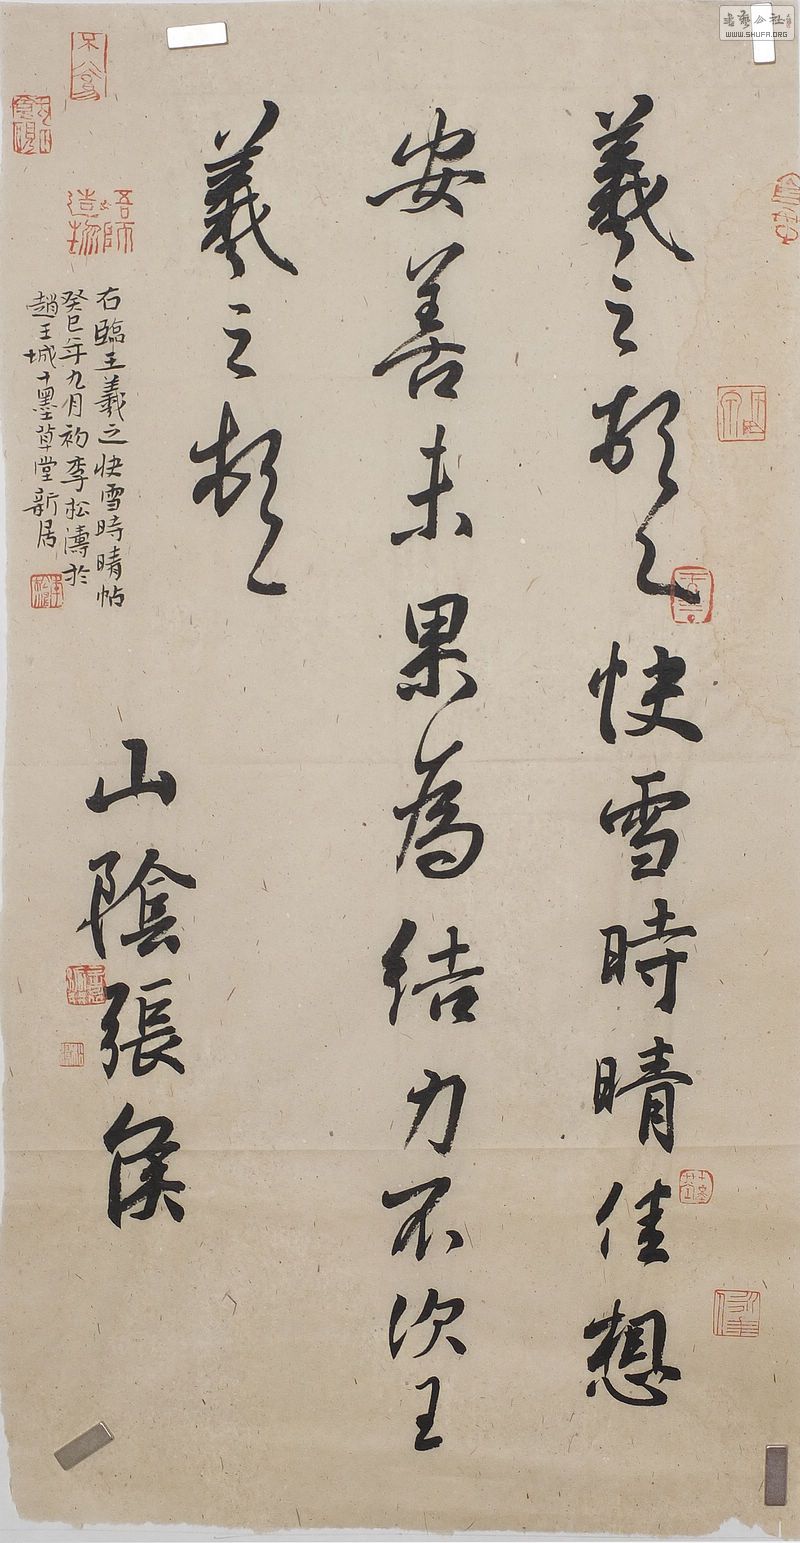 羲之頓首快雪時晴佳想
安善未果為結力不次王
羲之頓首
山陰張侯
右臨王羲之快雪時晴帖
癸巳年九月初李松濤於
趙王城十墨草堂新居
吾師造物
書藝公社
WWW.SHUFA.ORG